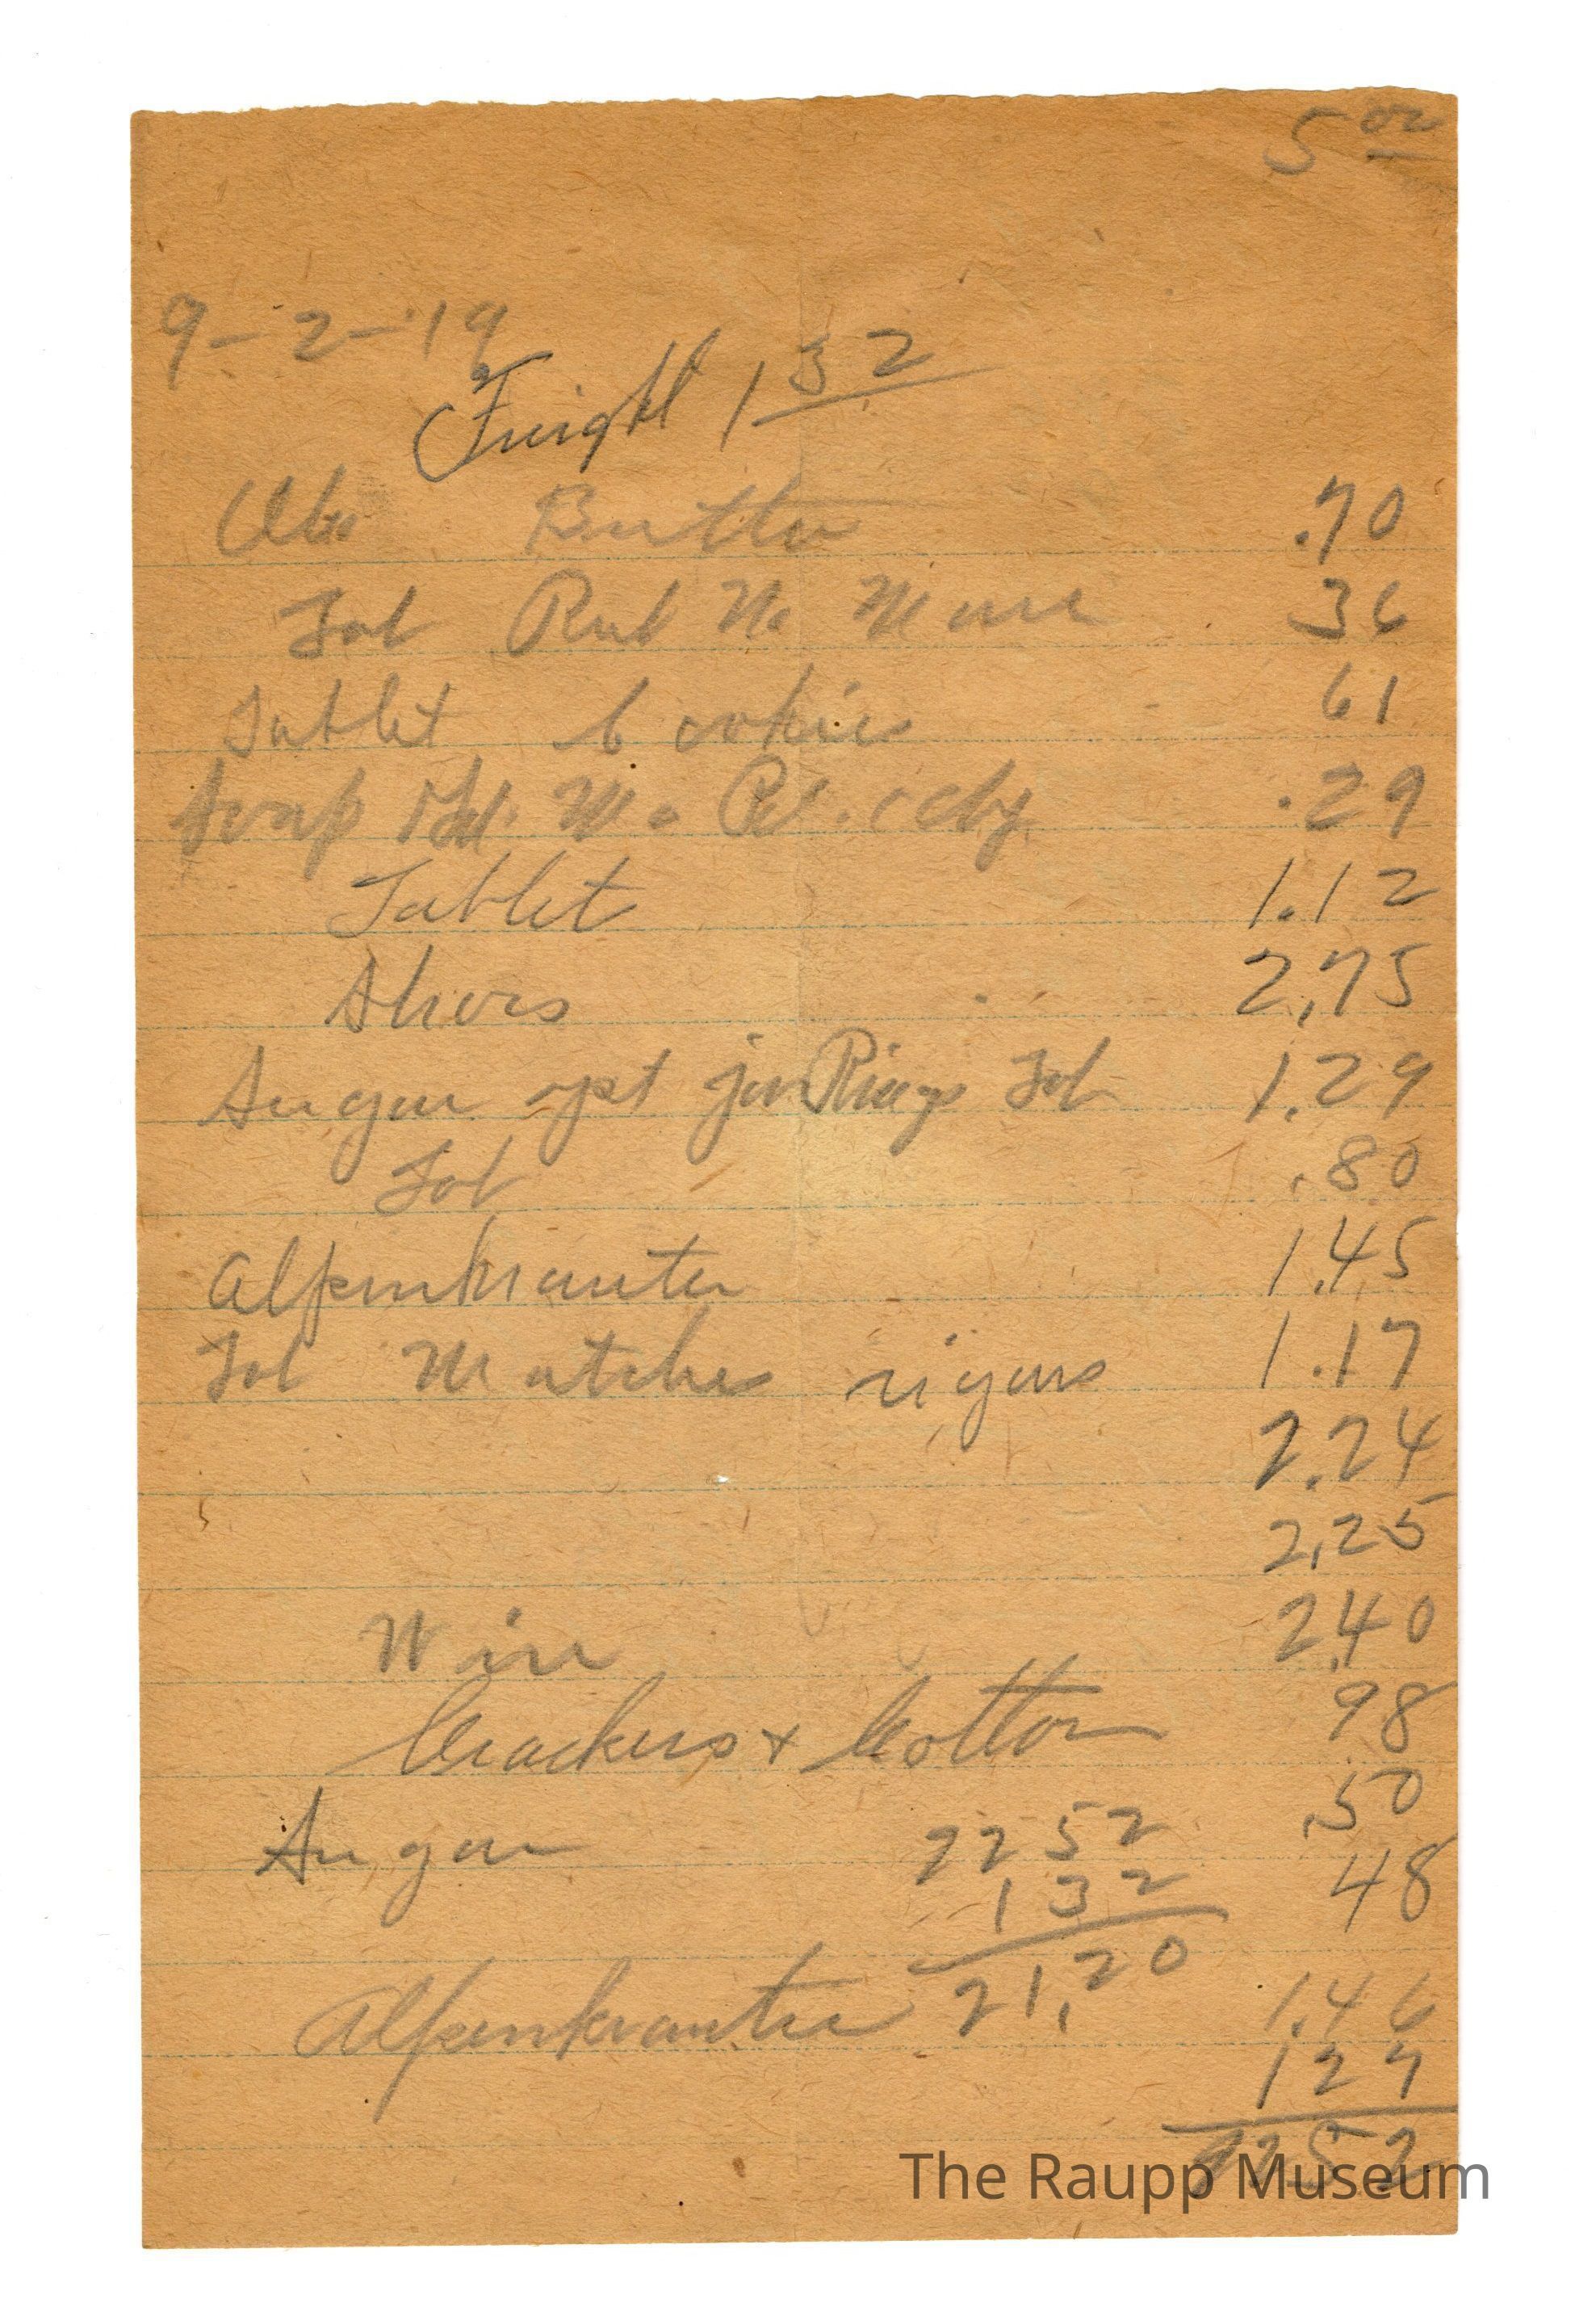 5 00
9-2-'19
Freight 1 32
Butter .70
Tob Rub No More 36
Tablet Cookies 61
Soap .29
Tablet 1.12
Shoes 2,75
Sugar Jar Rings Tob 1.29
Tob .80
Alpenkrauter 1.45
Tob Matches cigars 1.17
2.24
2,25
Wire 2.40
Crackers + Cotton .98
.50
Sugar 48
22 52
1 32
21,20
Alpenkrauter 1.46
1 27
22 52
The Raupp Museum